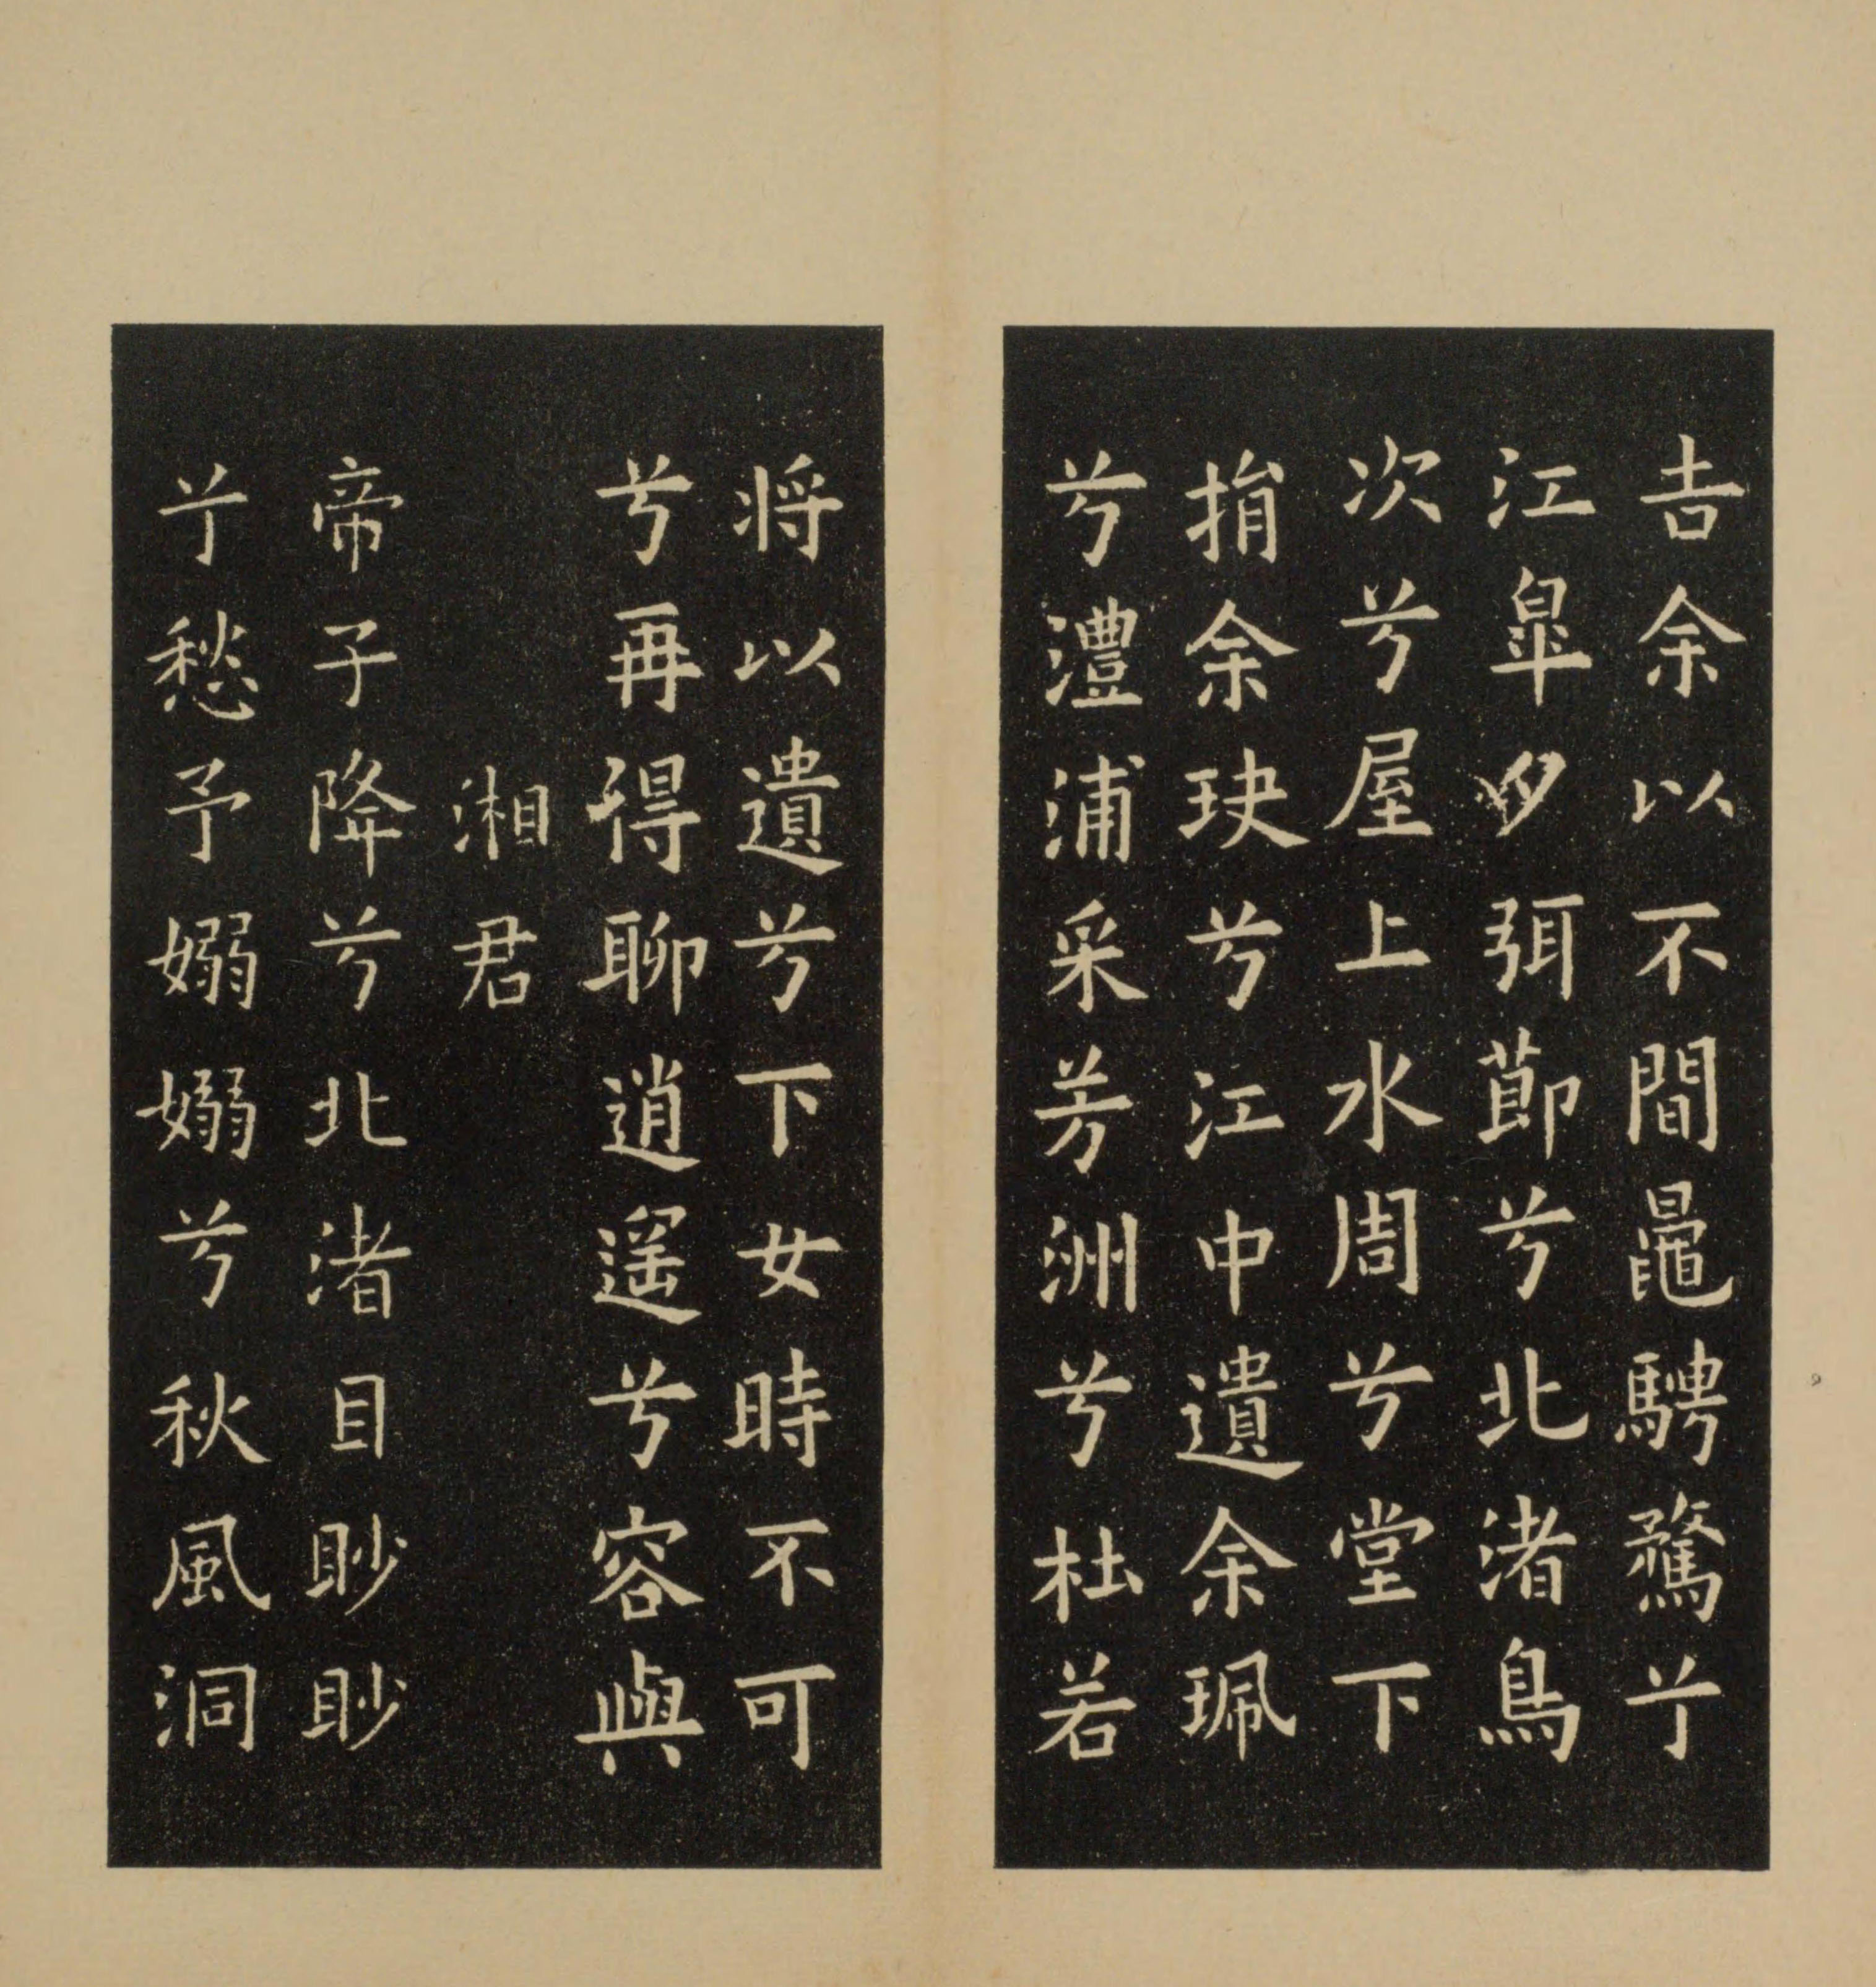 吉余以不閒鼂騁騖兮
江皐夕弭節兮北渚鳥
次兮屋上水周兮堂下
捐余玦兮江中遺余珮
兮澧浦采芳洲兮杜若
將以遺兮下女時不可
兮再得聊逍遥兮容與
湘君
帝子降兮北渚目眇眇
兮愁予嫋嫋兮秋風洞